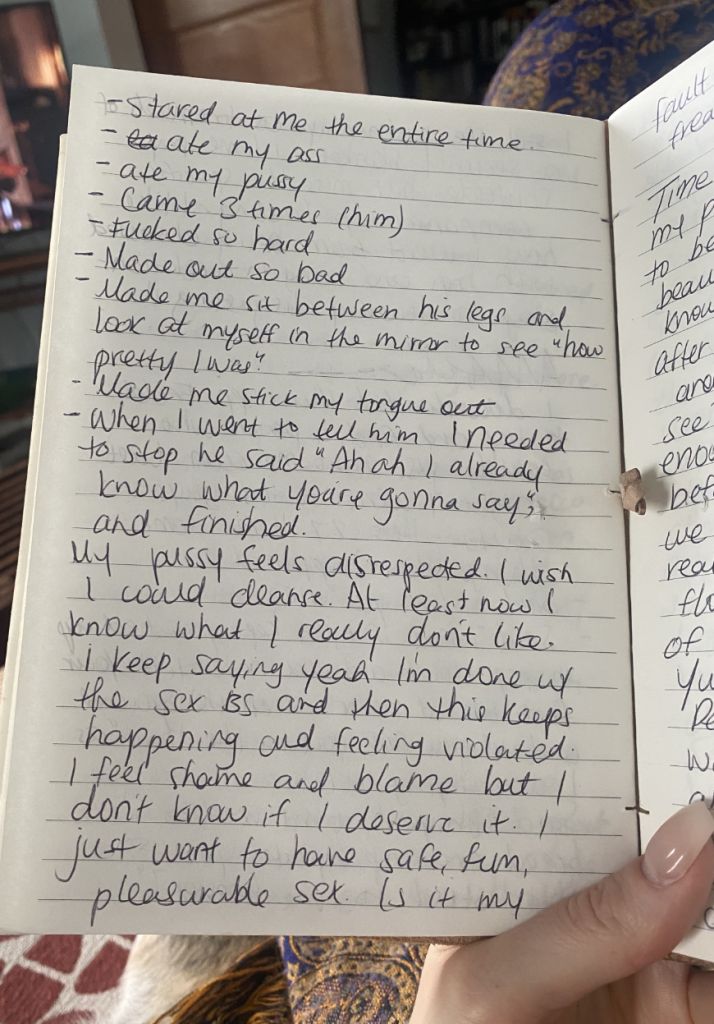 - Stared at me the entire time.
- ate my ass
- ate my pussy
- Came 3 times (him)
- Fucked so hard
- Made out so bad
- Made me sit between his legs and
look at myself in the mirror to see "how
pretty I was".
- Made me stick my tongue out
- When I went to tell him I needed
to stop he said "Ah ah I already
know what you're gonna say",
and finished.
My pussy feels disrespected. I wish
I could cleanse. At least now I
know what I really don't like.
I keep saying yeah I'm done w/
the sex BS and then this keeps
happening and feeling violated.
I feel shame and blame but I
don't know if I deserve it. I
just want to have safe, fun,
pleasurable sex. Is it my
fault
Time
my p
to be
beau
know
after
see
enou
bef
we
of